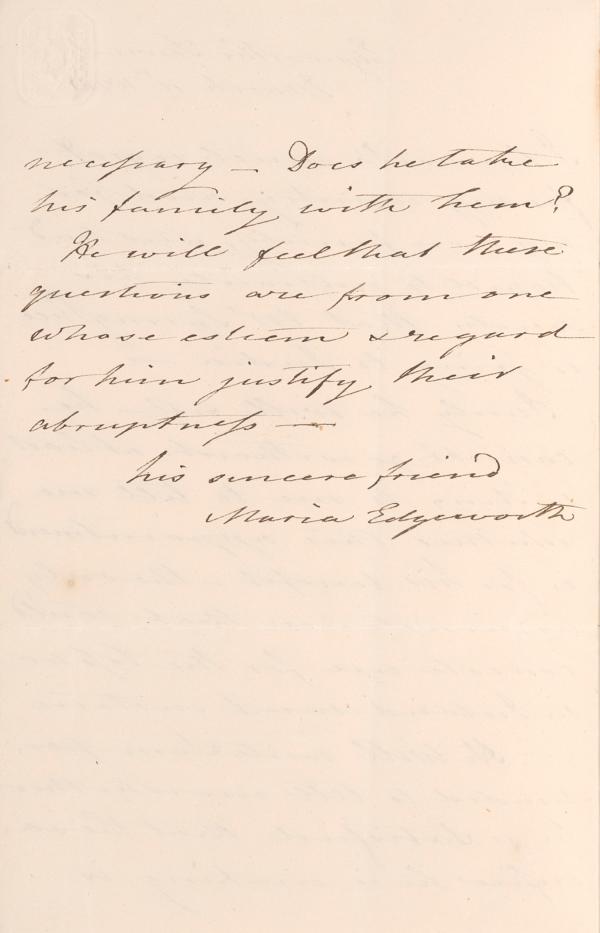 necessary — Does he take
his family with him?
He will feel that these
questions are from one
whose esteem & regard
for him justify their
abruptness —
his sincere friend
Maria Edgeworth